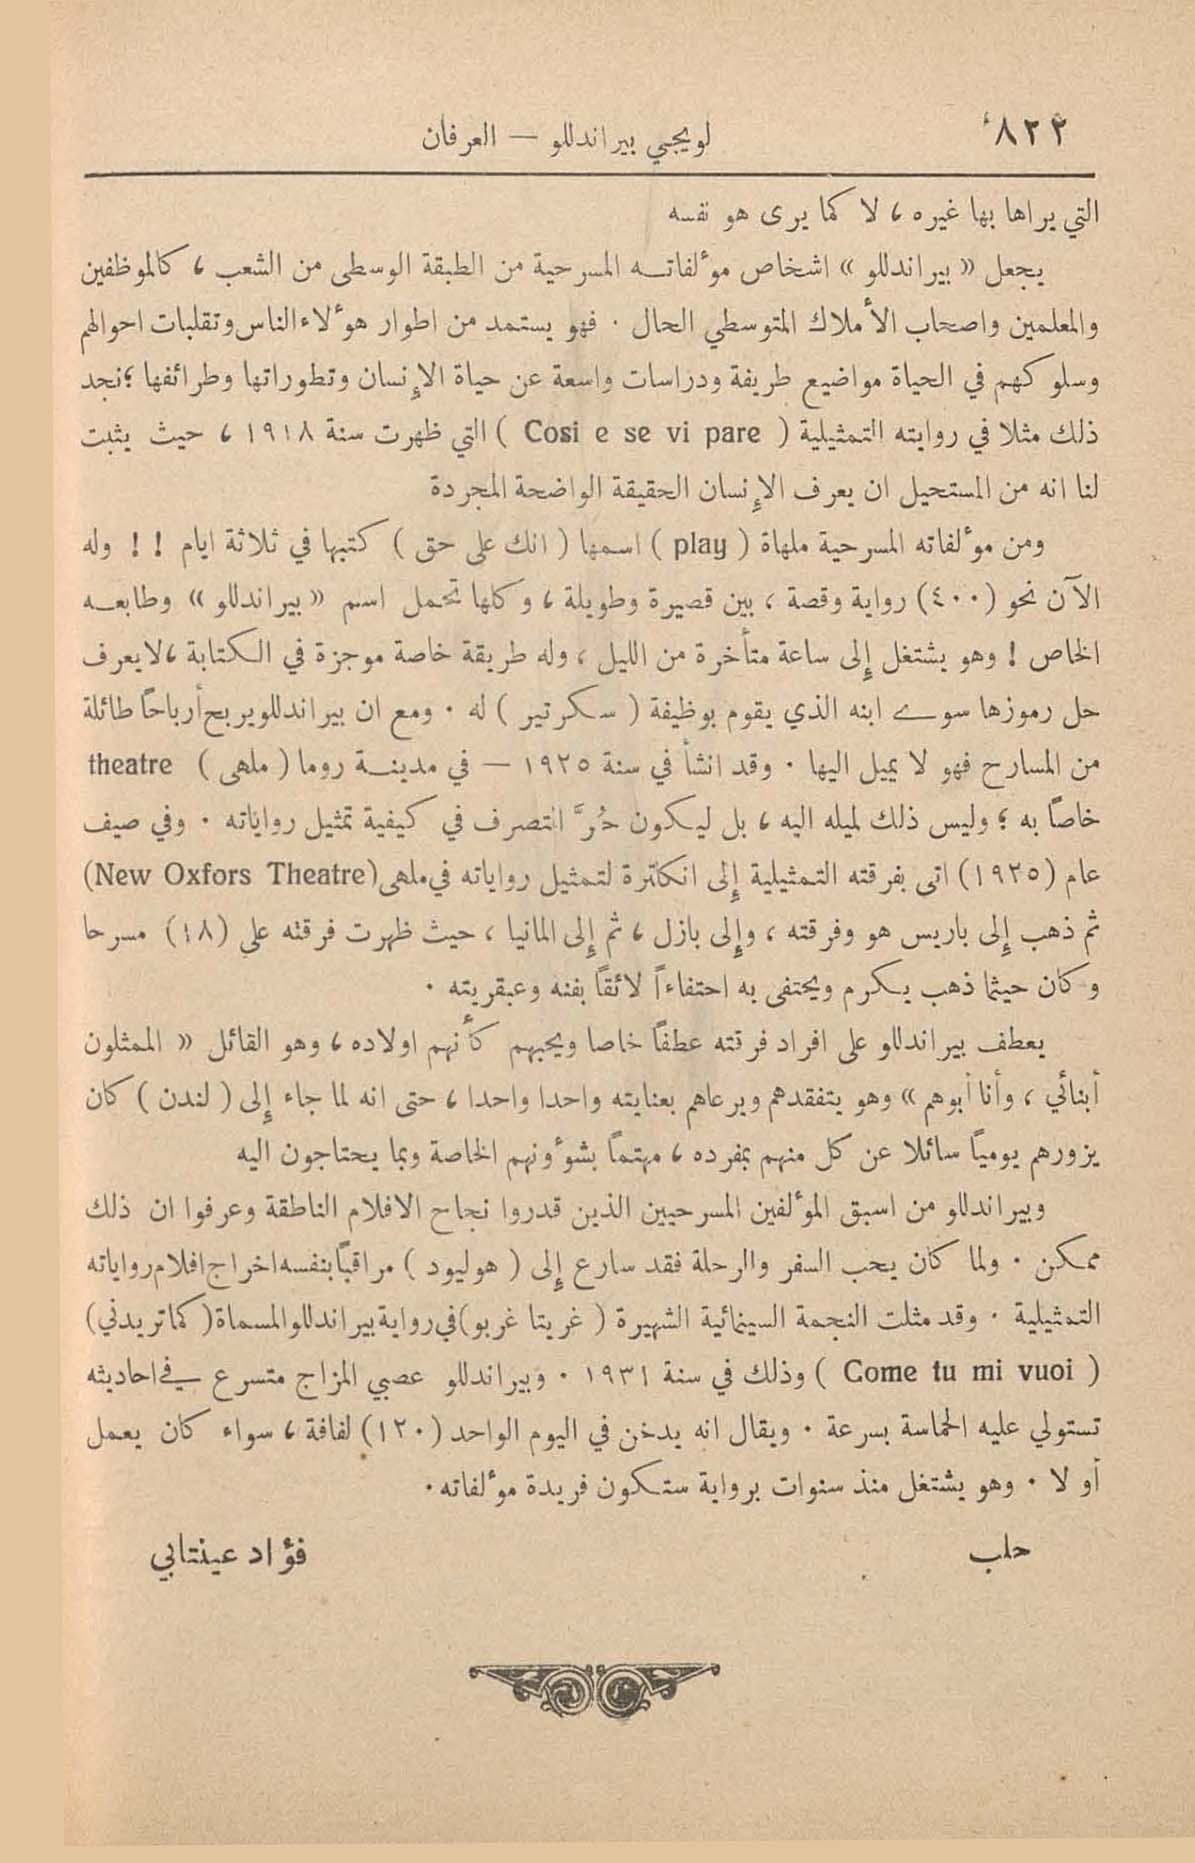 ٨٢٢
لويجي بيراندللو — العرفان
التي يراها بها غيره ، لا كما يرى هو نفسه
يجعل « بيراندللو » اشخاص موءلفاته المسرحية من الطبقة الوسطى من الشعب ، كالموظفين
والمعلمين واصحاب الأملاك المتوسطي الحال . فهو يستمد من اطوار هوءلاء الناس وتقلبات احوالهم
وسلوكهم في الحياة مواضيع طريفة ودراسات واسعة عن حياة الإنسان وتطوراتها وطرائفها ؛ نجد
ذلك مثلا في روايته التمثيلية ( Cosi e se vi pare ) التي ظهرت سنة ١٩١٨ ، حيث يثبت
لنا انه من المستحيل ان يعرف الإنسان الحقيقة الواضحة المجردة
ومن موءلفاته المسرحية ملهاة ( play ) اسمها ( انك على حق ) كتبها في ثلاثة ايام ! ! وله
الآن نحو (٤٠٠) رواية وقصة ، بين قصيرة وطويلة ، وكلها تحمل اسم « بيراندللو » وطابعه
الخاص ! وهو يشتغل إلى ساعة متأخرة من الليل ، وله طريقة خاصة موجزة في الكتابة ، لا يعرف
حل رموزها سوى ابنه الذي يقوم بوظيفة ( سكرتير ) له . ومع ان بيراندللو يربح أرباحاً طائلة
من المسارح فهو لا يميل اليها . وقد انشأ في سنة ١٩٢٥ — في مدينة روما ( ملهى ) theatre
خاصاً به ؛ وليس ذلك لميله اليه ، بل ليكون حُرَّ التصرف في كيفية تمثيل رواياته . وفي صيف
عام (١٩٢٥) اتى بفرقته التمثيلية إلى انكلترة لتمثيل رواياته في ملهى (New Oxfors Theatre)
ثم ذهب إلى باريس هو وفرقته ، وإلى بازل ، ثم إلى المانيا ، حيث ظهرت فرقته على (١٨) مسرحا
وكان حيثما ذهب يكرم ويحتفى به احتفاءاً لائقاً بفنه وعبقريته .
يعطف بيراندللو على افراد فرقته عطفاً خاصا ويحبهم كأنهم اولاده ، وهو القائل « الممثلون
أبنائي ، وأنا أبوهم » وهو يتفقدهم ويرعاهم بعنايته واحدا واحدا ، حتى انه لما جاء إلى ( لندن ) كان
يزورهم يومياً سائلا عن كل منهم بمفرده ، مهتماً بشوءونهم الخاصة وبما يحتاجون اليه
وبيراندللو من اسبق الموءلفين المسرحيين الذين قدروا نجاح الافلام الناطقة وعرفوا ان ذلك
ممكن . ولما كان يحب السفر والرحلة فقد سارع إلى ( هوليود ) مراقباً بنفسه اخراج افلام رواياته
التمثيلية . وقد مثلت النجمة السينمائية الشهيرة ( غريتا غربو ) في رواية بيراندللو المسماة ( كما تريدني )
( Come tu mi vuoi ) وذلك في سنة ١٩٣١ . وبيراندللو عصبي المزاج متسرع في احاديثه
تستولي عليه الحماسة بسرعة . ويقال انه يدخن في اليوم الواحد (١٢٠) لفافة ، سواء كان يعمل
أو لا . وهو يشتغل منذ سنوات برواية ستكون فريدة موءلفاته .
حلب
فؤاد عينتابي